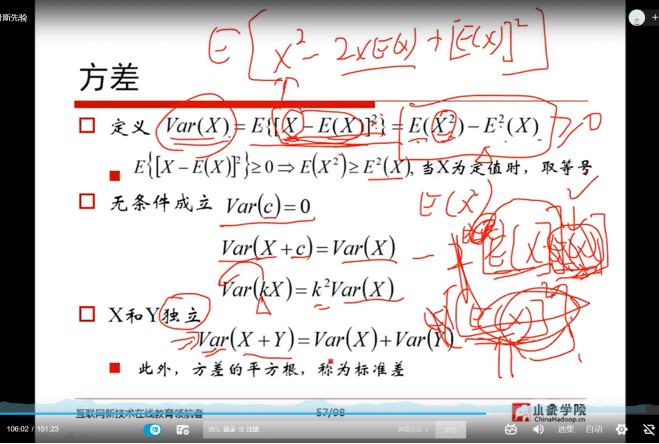 E[X² - 2XE(X) + [E(X)]²]
方差
定义 Var(X) = E{[X - E(X)]²} = E(X²) - E²(X) ≥0
E{[X - E(X)]²} ≥ 0 ⇒ E(X²) ≥ E²(X), 当X为定值时，取等号
无条件成立 Var(c) = 0
E(X²)
Var(X + c) = Var(X)
Var(kX) = k²Var(X)
X和Y独立
Var(X + Y) = Var(X) + Var(Y)
此外，方差的平方根，称为标准差
互联网新技术在线教育领航者
57/98
小象学院
ChinaHadoop.cn
106:02 / 151:23
请先 登录 或 注册
弹幕礼仪
发送
选集
自动